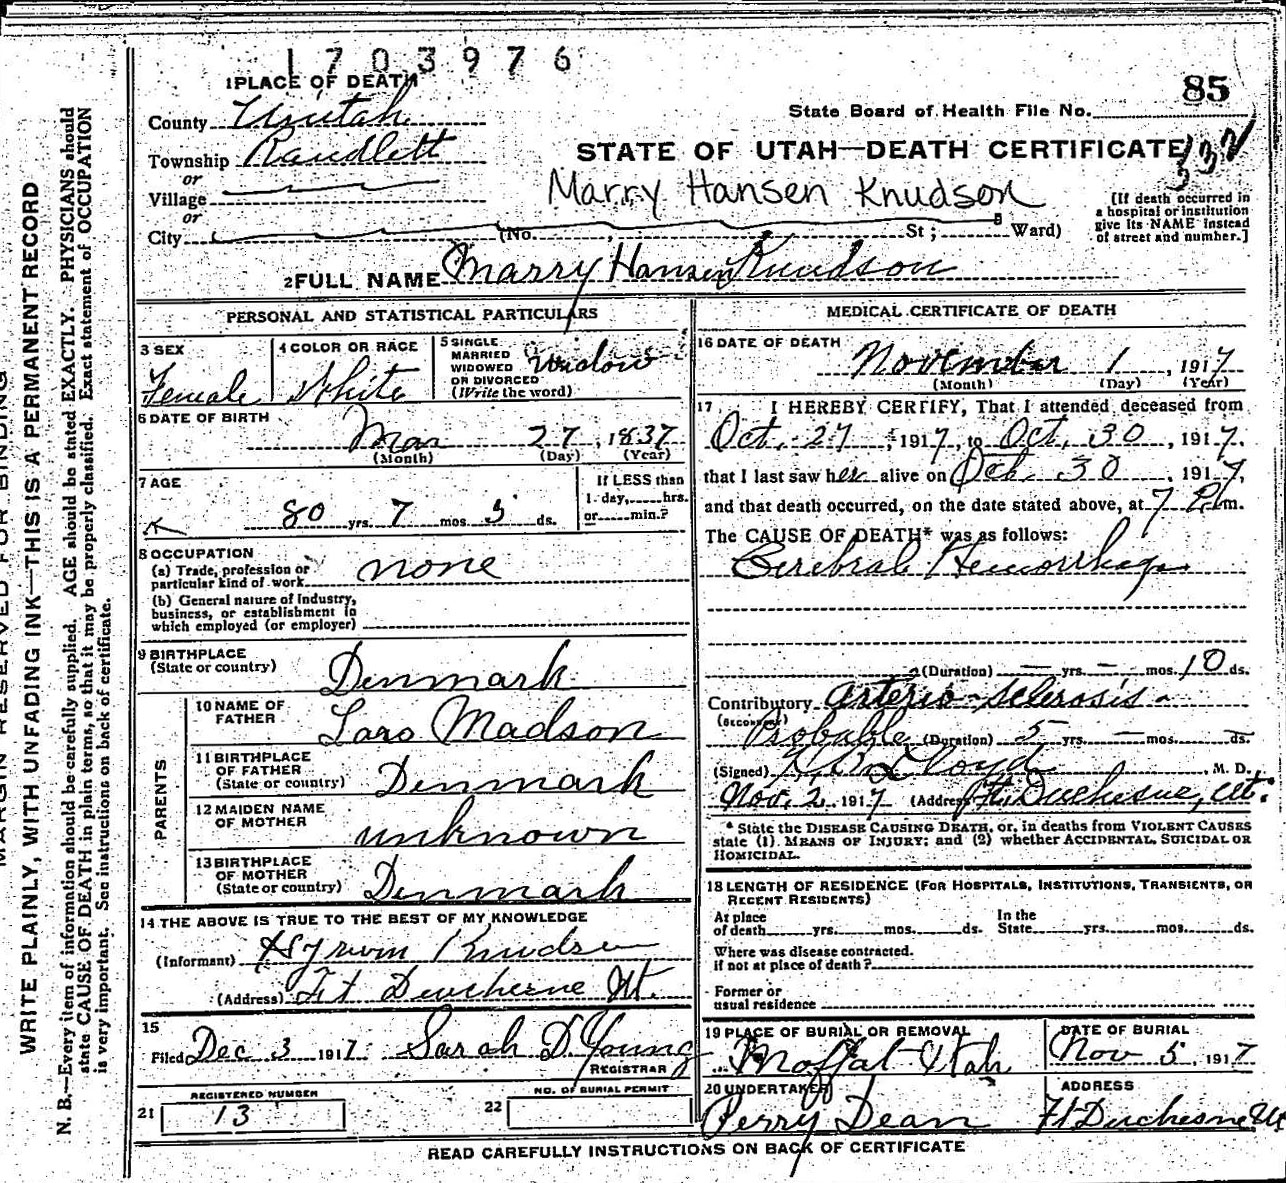 1703976
1 PLACE OF DEATH
85
State Board of Health File No.
County Uintah
Township Randlett
or
Village
or
City (No. , St; Ward)
STATE OF UTAH—DEATH CERTIFICATE 337
Marry Hansen Knudson
[If death occurred in
a hospital or institution
give its NAME instead
of street and number.]
2 FULL NAME Marry Hansen Knudson
PERSONAL AND STATISTICAL PARTICULARS
3 SEX
Female
4 COLOR OR RACE
White
5 SINGLE
MARRIED
WIDOWED
OR DIVORCED
(Write the word)
Widow
6 DATE OF BIRTH
Mar 27, 1837
(Month) (Day) (Year)
7 AGE
80 yrs. 7 mos. 5 ds.
If LESS than
1 day, hrs.
or min.?
8 OCCUPATION
(a) Trade, profession or
particular kind of work none
(b) General nature of industry,
business, or establishment in
which employed (or employer)
9 BIRTHPLACE
(State or country) Denmark
PARENTS
10 NAME OF
FATHER Lars Madson
11 BIRTHPLACE
OF FATHER
(State or country) Denmark
12 MAIDEN NAME
OF MOTHER unknown
13 BIRTHPLACE
OF MOTHER
(State or country) Denmark
14 THE ABOVE IS TRUE TO THE BEST OF MY KNOWLEDGE
(Informant) Hyrum Knudsen
(Address) Ft Duchesne Ut.
15
Filed Dec 3 1917 Sarah D. Young
REGISTRAR
21 REGISTERED NUMBER
13
22 NO. OF BURIAL PERMIT
MEDICAL CERTIFICATE OF DEATH
16 DATE OF DEATH
November 1, 1917
(Month) (Day) (Year)
17 I HEREBY CERTIFY, That I attended deceased from
Oct. 27, 1917, to Oct. 30, 1917,
that I last saw her alive on Oct. 30 1917,
and that death occurred, on the date stated above, at 7 P.m.
The CAUSE OF DEATH* was as follows:
Cerebral Hemorrhage
(Duration) — yrs. — mos. 10 ds.
Contributory Arterio-sclerosis -
(SECONDARY)
Probable (Duration) 5 yrs. — mos. — ds.
(Signed) Lloyd M. D.
Nov. 2, 1917 (Address) Ft. Duchesne, Ut.
* State the DISEASE CAUSING DEATH, or, in deaths from VIOLENT CAUSES
state (1) MEANS OF INJURY; and (2) whether ACCIDENTAL, SUICIDAL OR
HOMICIDAL.
18 LENGTH OF RESIDENCE (FOR HOSPITALS, INSTITUTIONS, TRANSIENTS, OR
RECENT RESIDENTS)
At place
of death yrs. mos. ds.
In the
State yrs. mos. ds.
Where was disease contracted.
if not at place of death?
Former or
usual residence
19 PLACE OF BURIAL OR REMOVAL
Moffat Utah
DATE OF BURIAL
Nov 5, 1917
20 UNDERTAKER
Perry Dean
ADDRESS
Ft Duchesne Ut
READ CAREFULLY INSTRUCTIONS ON BACK OF CERTIFICATE
MARGIN RESERVED FOR BINDING
WRITE PLAINLY, WITH UNFADING INK—THIS IS A PERMANENT RECORD
N. B.—Every item of information should be carefully supplied. AGE should be stated EXACTLY. PHYSICIANS should
state CAUSE OF DEATH in plain terms, so that it may be properly classified. Exact statement of OCCUPATION
is very important. See instructions on back of certificate.